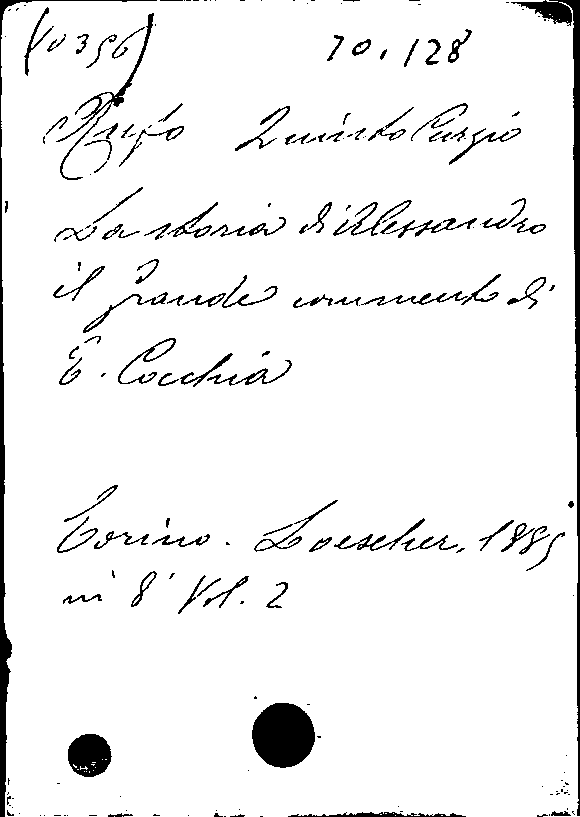 (10356) 70.128
Rufo Quinto Curzio
La storia di Alessandro
il grande commento di
E. Cocchia
Torino. Loescher, 1885
in 8° Vol. 2